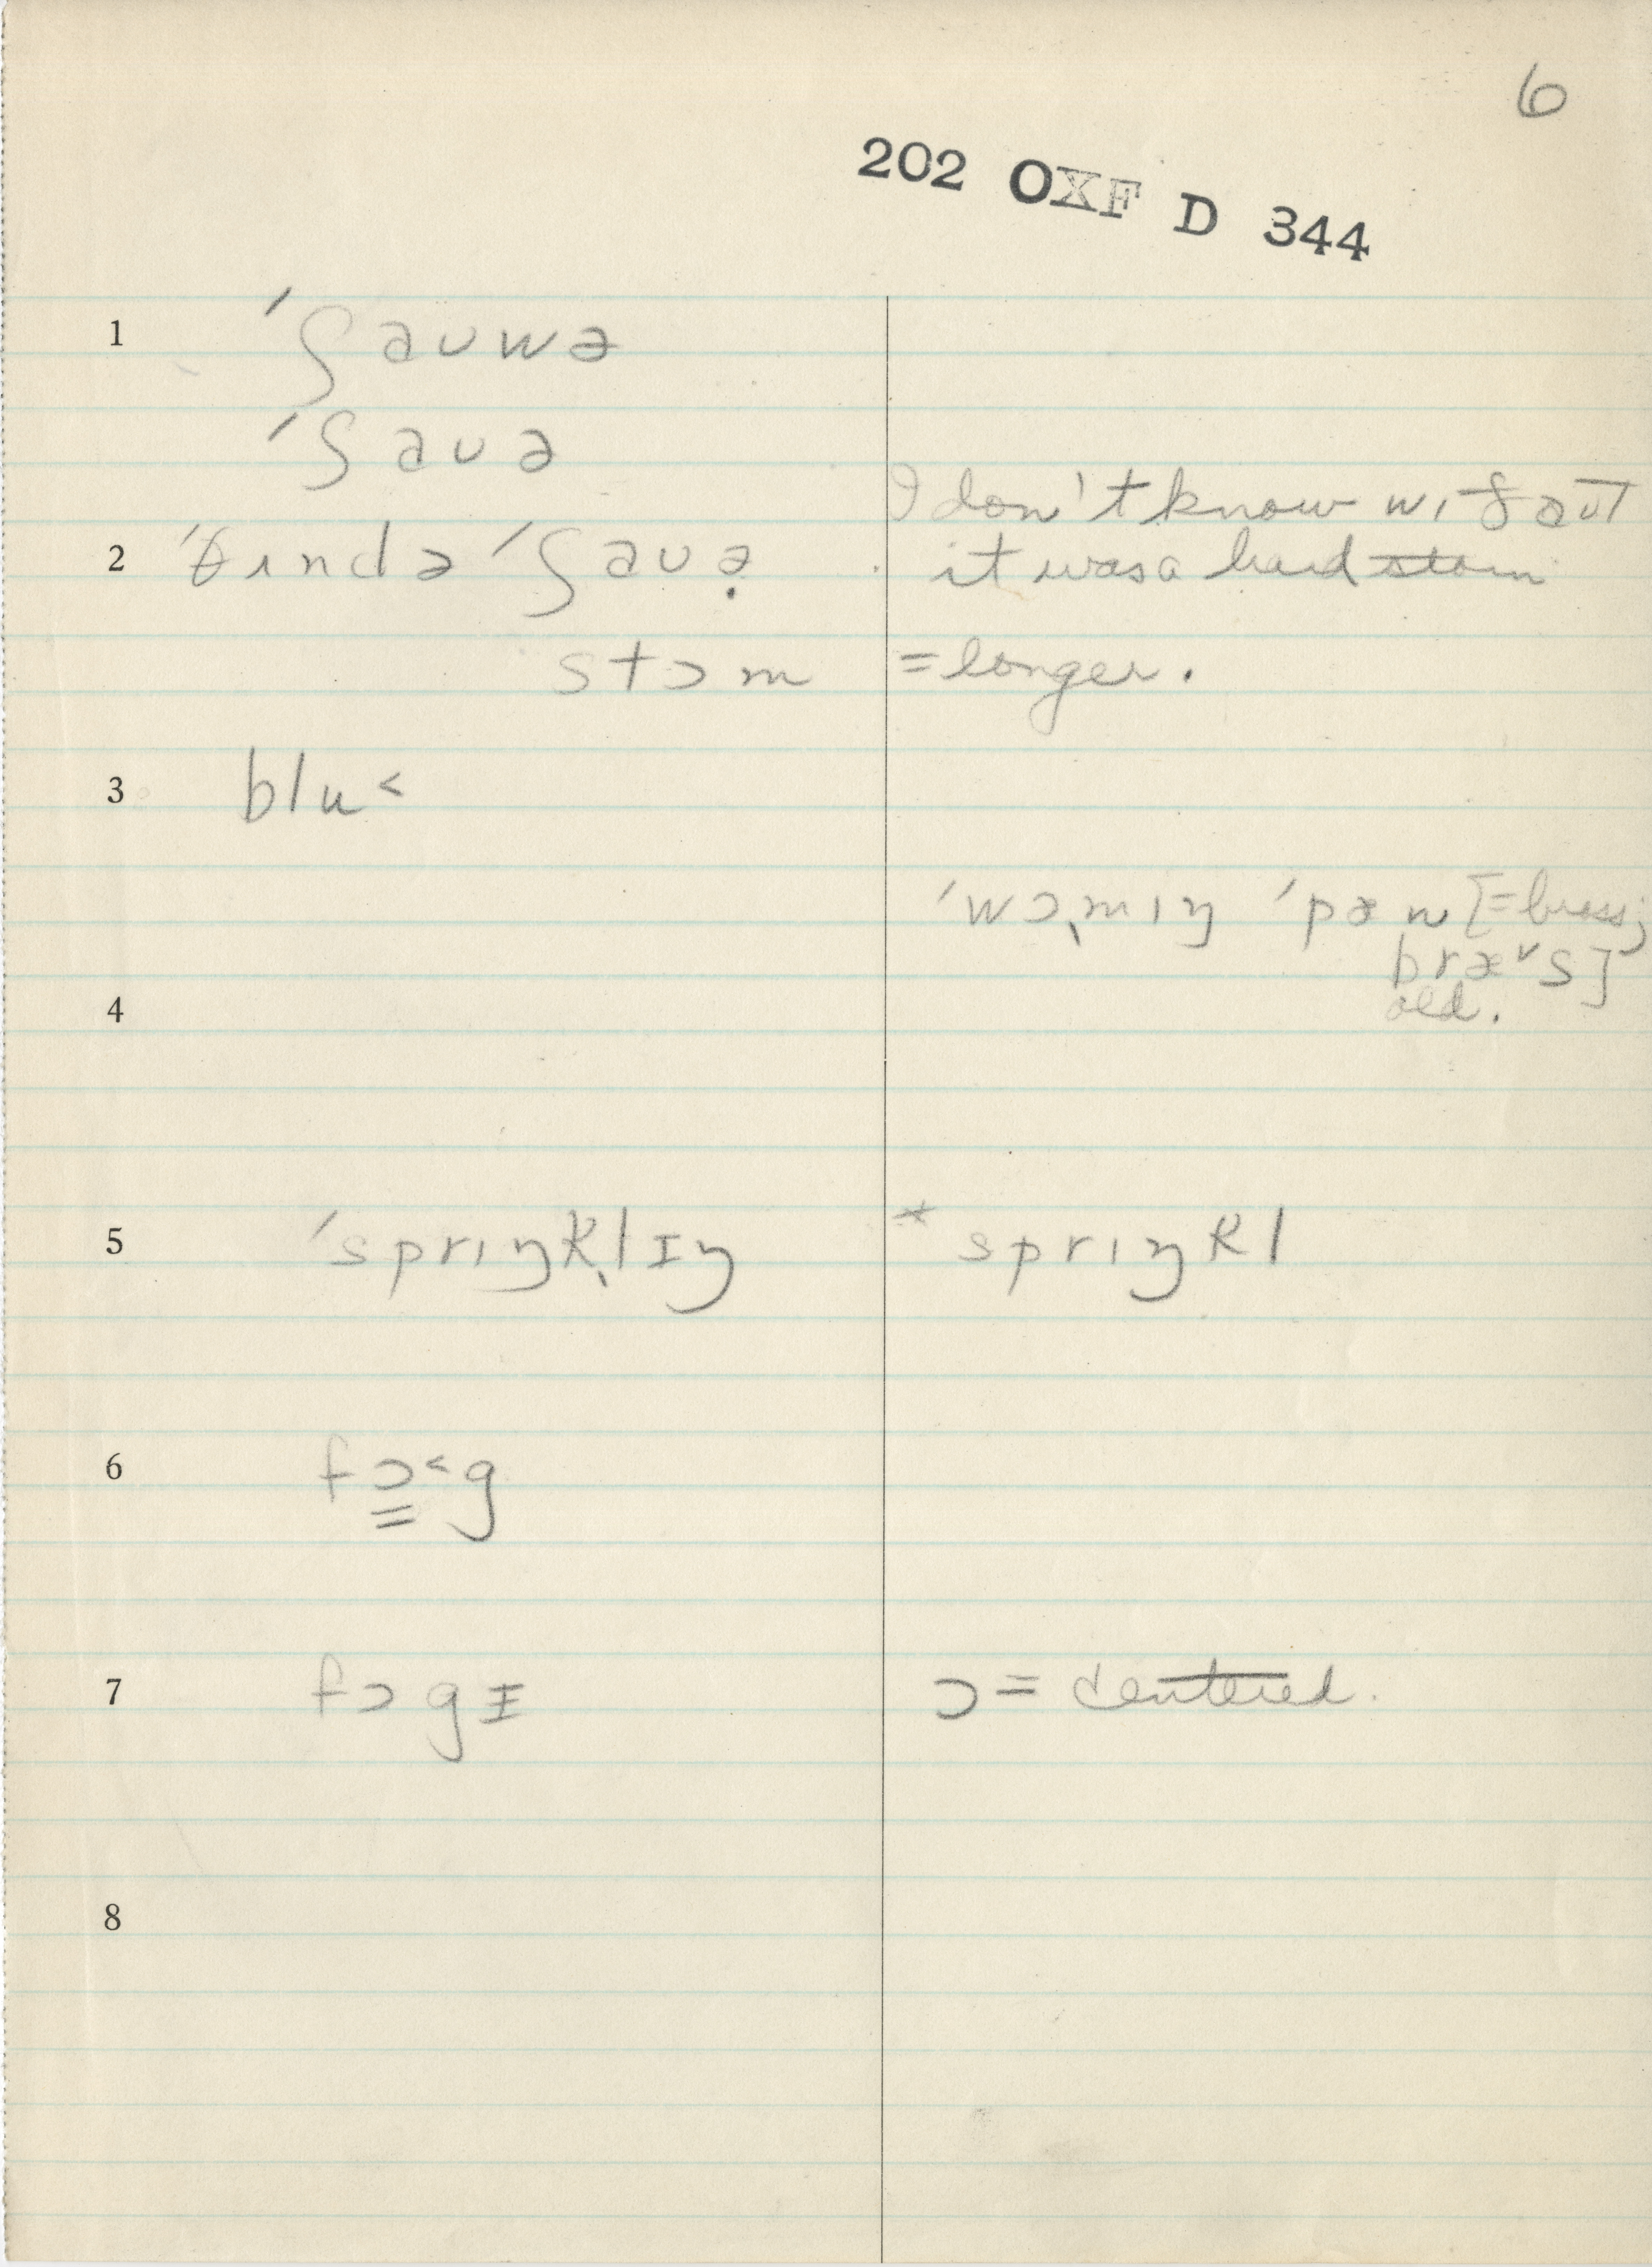 6
202 OXF D 344
1 ˈʃauwə
ˈʃauə
I don't know wɪðaut
2 ˈθʌndə ˈʃauə̣ it was a hard storm
stɔm = longer.
3 blu˂
ˈwɔ̨mɪŋ ˈpæn [= brass;
bræ˅s]
4 old.
5 ˈsprɪŋk̨lɪŋ * sprɪŋkl
6 fɔ̳˂g
7 fɔgɪ ɔ = centered.
8